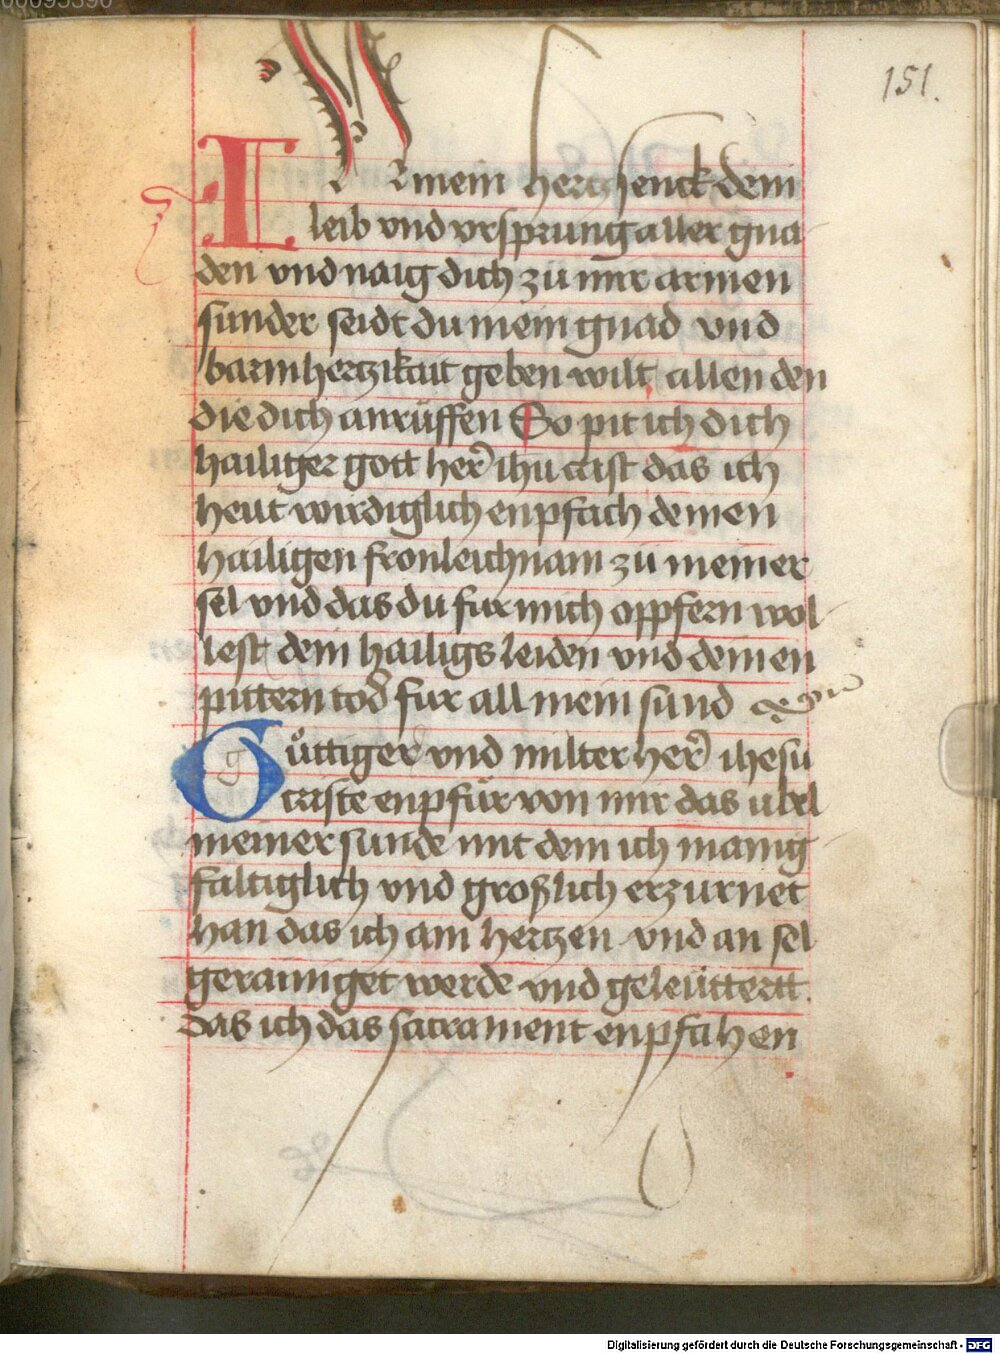 151.
IN mein hertz senck dein
leib vnd vrsprung aller gna
den vnd naig dich zü mir armen
sunder seidt du mein gnad vnd
barmhertzikait geben wilt allen den
die dich anrüffen So pit ich dich
hailiger gott her̄ ihu crist das ich
heut wirdiglich enpfach deinen
hailigen fronleichnam zü meiner
sel vnd das du fur mich oppfern wol
lest dein hailigs leiden vnd deinen
pittern tod fur all mein sund
Gůttiger vnd milter her̄ ihesu
criste enpfür von mir das ubel
meiner sunde mit dem ich manig
faltiglich vnd großlich erzurnet
han das ich am hertzen vnd an sel
gerainiget werde vnd geleuttertt
das ich das sacrament enpfahen
Digitalisierung gefördert durch die Deutsche Forschungsgemeinschaft - DFG